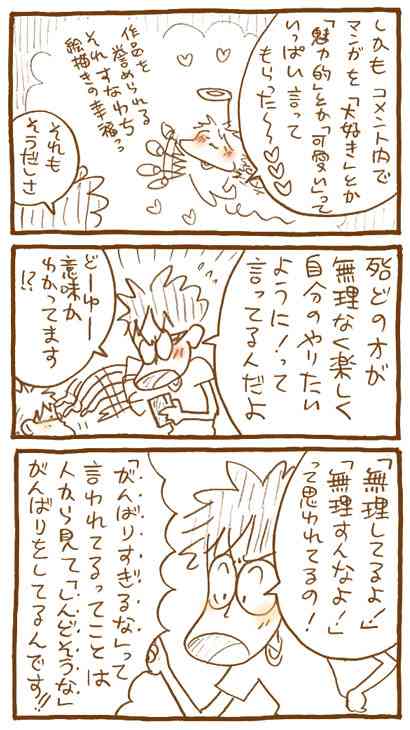 しかもコメント内で
マンガを「大好き」とか
「魅力的」とか「可愛い」って
いっぱい言って
もらった〜〜♡♡♡
作品を
誉められる
それすなわち
絵描きの幸福っ
それも
そうだしさ
殆どの方が
無理なく楽しく
自分のやりたい
ように!って
言ってるんだよ
どーゆー
意味か
わかってます
!?
「無理してるよ!」
「無理すんなよ!」
って思われてるの!
「がんばりすぎるな」って
言われてるってことは
人から見て「しんどそうな」
がんばりをしてるんです!!